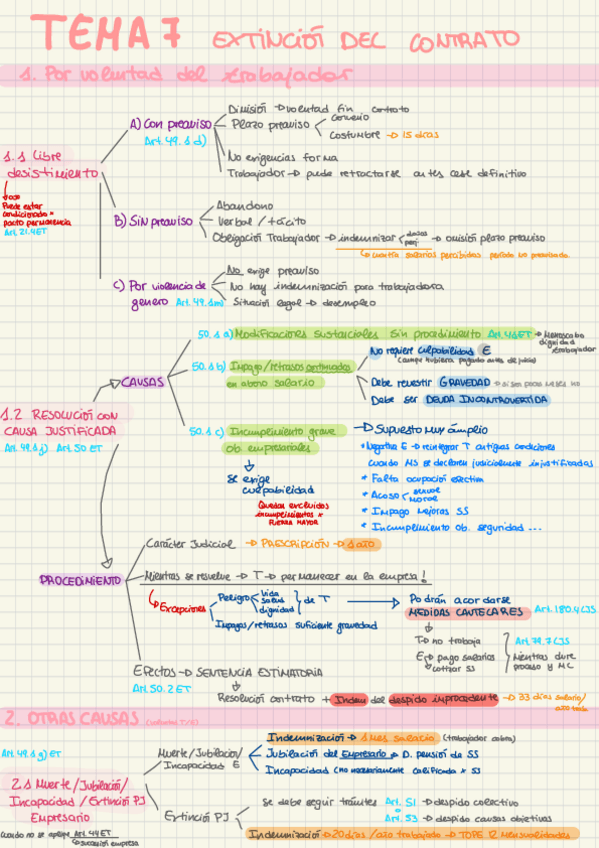 TEMA 7 EXTINCIÓN DEL CONTRATO
1. Por voluntad del trabajador
1.1 Libre desistimiento
Puede estar condicionado x pacto permanencia
Art. 21.4 ET
A) Con preaviso
Art. 49.1 d)
Dimisión → voluntad fin contrato
Plazo preaviso
Convenio
Costumbre → 15 días
No exigencias forma
Trabajador → puede retractarse antes cese definitivo
B) Sin preaviso
Abandono
Verbal / tácito
Obligación Trabajador → indemnizar
daños
perj.
→ omisión plazo preaviso
↳ cuantía salarios percibidos periodo no preavisado
C) Por violencia de género Art. 49.1 m)
No exige preaviso
No hay indemnización para trabajadora
Situación legal → desempleo
1.2 RESOLUCIÓN CON CAUSA JUSTIFICADA
Art. 49.1 j) Art. 50 ET
CAUSAS
50.1 a) Modificaciones sustanciales sin procedimiento Art. 41 ET → Menoscabo dignidad trabajador
50.1 b) Impago/retrasos continuados en abono salario
No requiere culpabilidad E
(aunque hubiera pagado antes de juicio)
Debe revestir GRAVEDAD
Debe ser DEUDA INCONTROVERTIDA
50.1 c) Incumplimiento grave ob. empresariales
↓
Se exige culpabilidad
Quedan excluidos incumplimientos x FUERZA MAYOR
→ Supuesto muy amplio
* Negativa E → reintegrar T antiguas condiciones
cuando MS se declaren judicialmente injustificadas
* Falta ocupación efectiva
* Acoso
sexual
moral
* Impago mejoras SS
* Incumplimiento ob. seguridad ...
PROCEDIMIENTO
Carácter Judicial → PRESCRIPCIÓN → 1 año
Mientras se resuelve → T → permanecer en la empresa!
↳ Excepciones
Peligro
vida
salud
dignidad
de T
Impagos/retrasos suficiente gravedad
→ Podrán acordarse
MEDIDAS CAUTELARES Art. 180.4 LJS
T → no trabaja
E → pago salarios
cotizar SS
Art. 79.7 LJS
Mientras dure proceso y MC
Efectos → SENTENCIA ESTIMATORIA
Art. 50.2 ET
↓
Resolución contrato + Indem del despido improcedente → 33 días salario/
año trab
2. OTRAS CAUSAS
Art. 49.1 g) ET
2.1 Muerte/Jubilación/
Incapacidad / Extinción PJ
Empresario
Cuando no se aplique Art. 44 ET
↳ sucesión empresa
Muerte/Jubilación/
Incapacidad E
Indemnización → 1 mes salario (trabajador cobra)
Jubilación del Empresario → D. pensión de SS
Incapacidad (no necesariamente calificada x SS)
Extinción PJ
Se debe seguir trámites
Art. 51 → despido colectivo
o
Art. 53 → despido causas objetivas
Indemnización → 20 días /año trabajado → TOPE 12 mensualidades